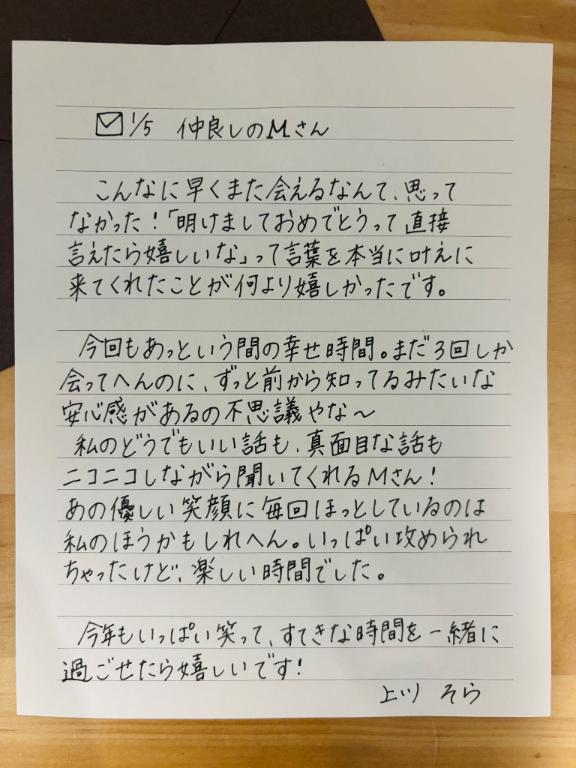 ✉1/5 仲良しのMさん
こんなに早くまた会えるなんて、思って
なかった！「明けましておめでとうって直接
言えたら嬉しいな」って言葉を本当に叶えに
来てくれたことが何より嬉しかったです。
今回もあっという間の幸せ時間。まだ3回しか
会ってへんのに、ずっと前から知ってるみたいな
安心感があるの不思議やな〜
私のどうでもいい話も、真面目な話も
ニコニコしながら聞いてくれるMさん！
あの優しい笑顔に毎回ほっとしているのは
私のほうかもしれへん。いっぱい攻められ
ちゃったけど、楽しい時間でした。
今年もいっぱい笑って、すてきな時間を一緒に
過ごせたら嬉しいです！
上川 そら